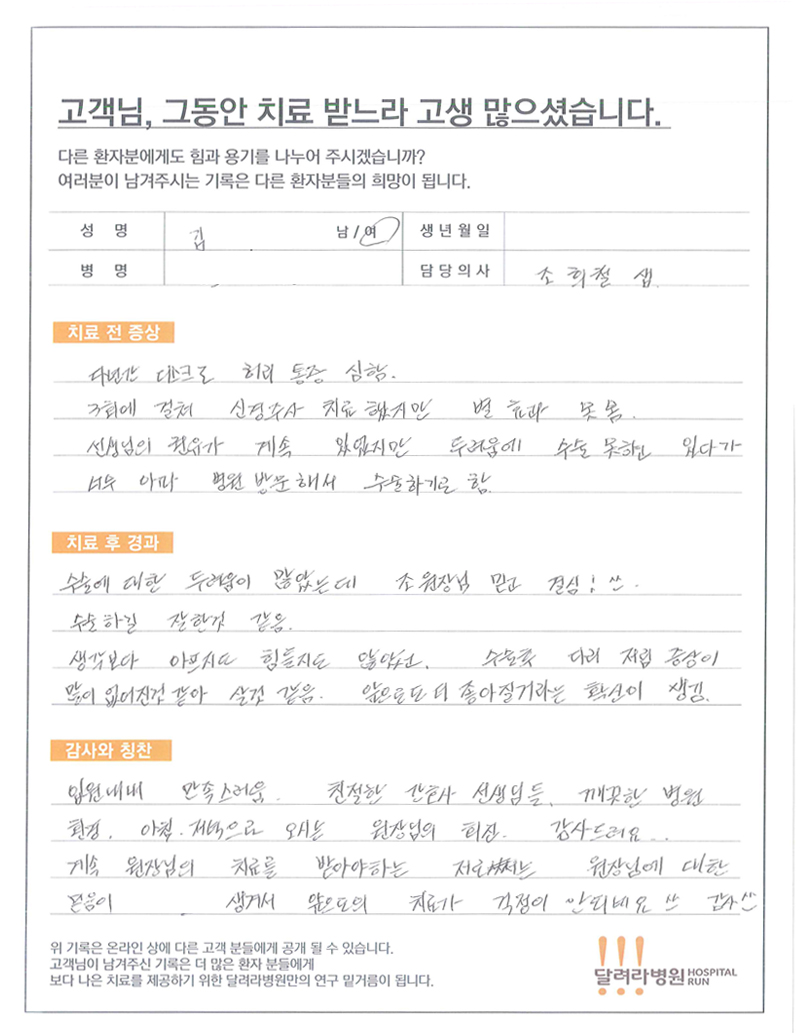 고객님, 그동안 치료 받느라 고생 많으셨습니다.
다른 환자분에게도 힘과 용기를 나누어 주시겠습니까?
여러분이 남겨주시는 기록은 다른 환자분들의 희망이 됩니다.
성 명 김 남 / 여 생년월일
병 명 담당의사 조희철 샘
치료 전 증상
다년간 디스크로 허리 통증 심함.
3회에 걸쳐 신경주사 치료 했지만 별 효과 못 봄.
선생님의 권유가 계속 있었지만 두려움에 수술 못하고 있다가
너무 아파 병원 방문해서 수술하기로 함.
치료 후 경과
수술에 대한 두려움이 많았는데 조원장님 믿고 결심!
수술하길 잘한것 같음.
생각보다 아프지도 힘들지도 않았고, 수술후 다리 저림 증상이
많이 없어진것 같아 살것 같음. 앞으로도 더 좋아질거라는 확신이 생김.
감사와 칭찬
입원내내 만족스러움. 친절한 간호사 선생님들, 깨끗한 병원
환경, 아침.저녁으로 오시는 원장님의 회진. 감사드려요..
계속 원장님의 치료를 받아야하는 저로서는 원장님에 대한
믿음이 생겨서 앞으로의 치료가 걱정이 안되네요 감사
위 기록은 온라인 상에 다른 고객 분들에게 공개 될 수 있습니다.
고객님이 남겨주신 기록은 더 많은 환자 분들에게
보다 나은 치료를 제공하기 위한 달려라병원만의 연구 밑거름이 됩니다.
달려라병원 HOSPITAL RUN